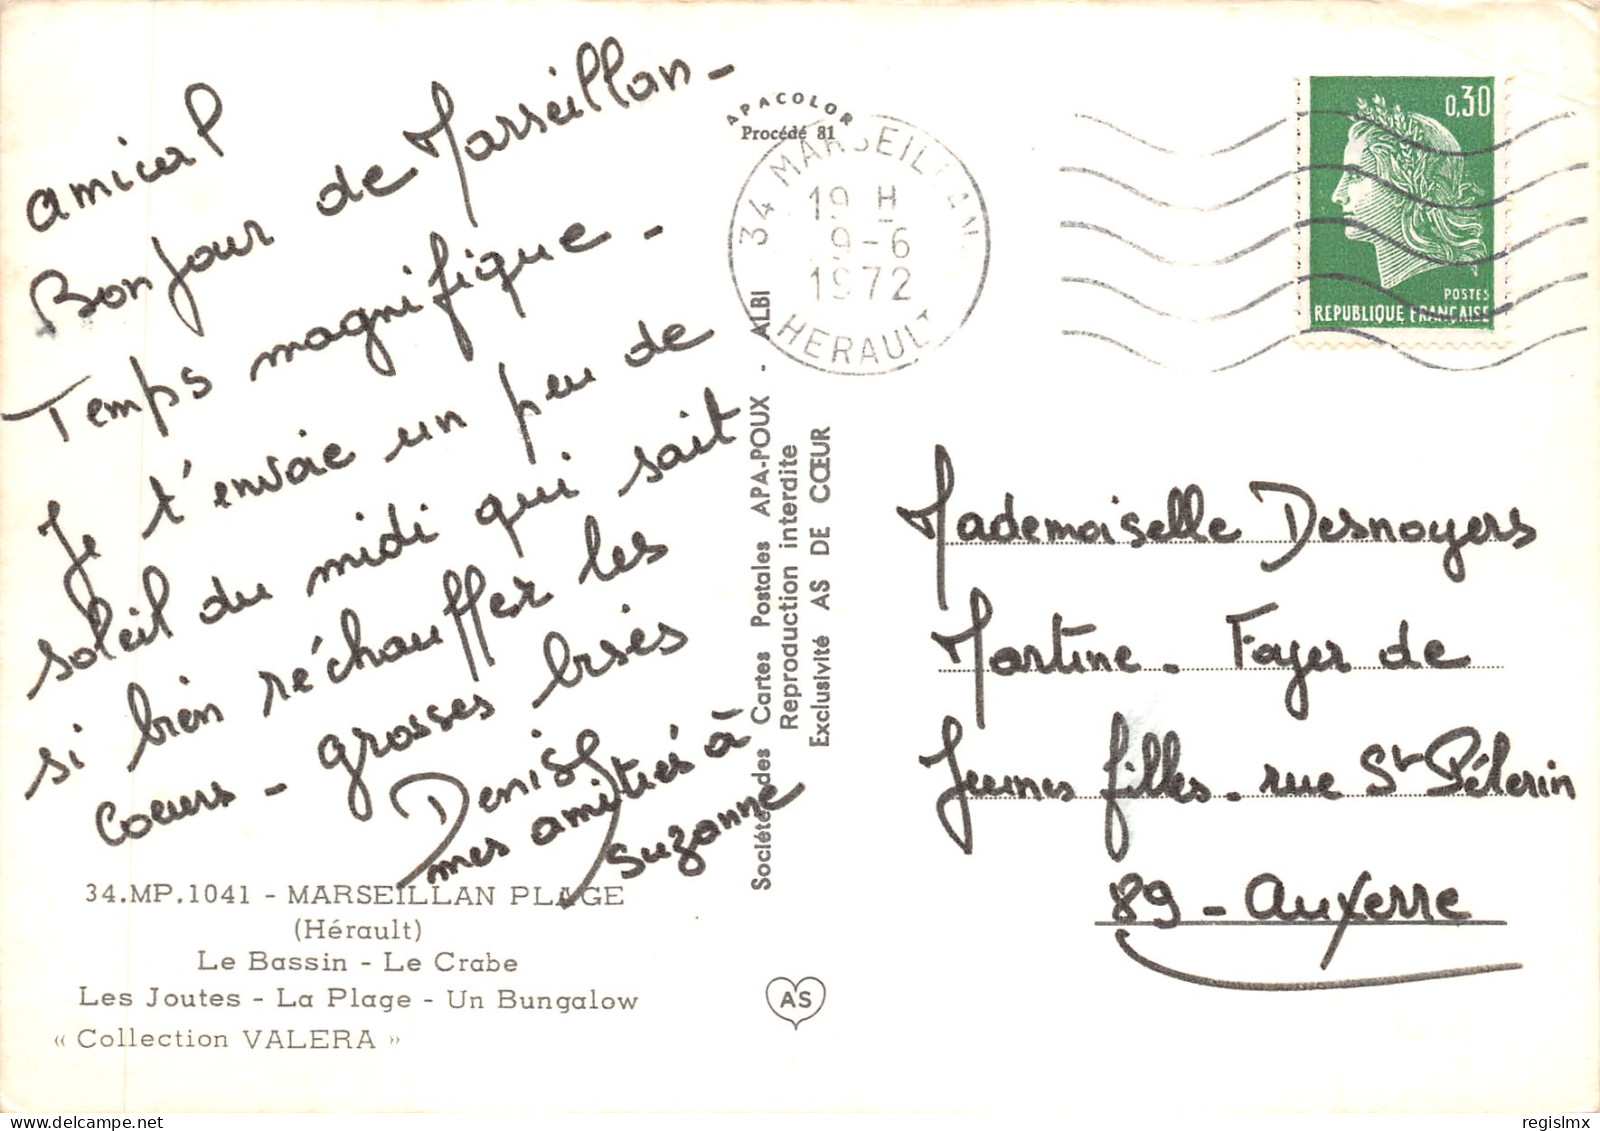 amical
Bonjour de Marseillan -
Temps magnifique -
Je t'envoie un peu de
soleil du midi qui sait
si bien réchauffer les
coeurs - grosses bises
Denise
mes amitiés à
Suzanne
34.MP.1041 - MARSEILLAN PLAGE
(Hérault)
Le Bassin - Le Crabe
Les Joutes - La Plage - Un Bungalow
« Collection VALERA »
APACOLOR
Procédé 81
34 MARSEILLAN
19 H
9-6
1972
HERAULT
Société des Cartes Postales APA-POUX - ALBI
Reproduction interdite
Exclusivité AS DE CŒUR
AS
0,30
POSTES
REPUBLIQUE FRANÇAISE
Mademoiselle Desnoyers
Martine - Foyer de
Jeunes filles - rue St Pélerin
89 - Auxerre
regislmx